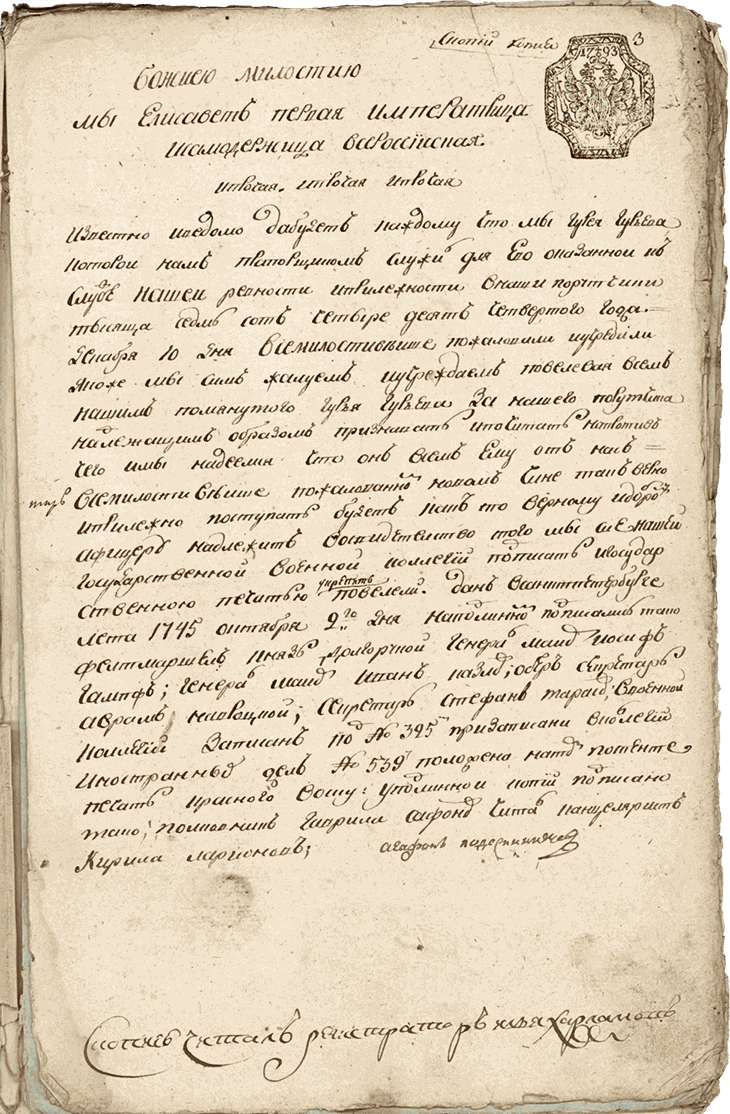 Скопiй копия
1793
3
Божиею милостию
мы Елисаветъ первая императрица
исамодержица всероссiйская.
ипрочая. ипрочая ипрочая
Известно иведомо дабудетъ каждому что мы
которой намъ служи для Его оказанной къ
службе нашей ревности иприлежности внаши
тысяща седмъ сотъ четыре десять четвертого года.=
Декабря 10 дня всемилостивейше пожаловали иучредили
якоже мы симъ жалуемъ иучреждаемъ повелевая всемъ
нашимъ помянутого Гурья Гурьева За нашего порутчика
надлежащимъ образомъ признавать ипочитать напротивъ
чего имы надеемся что онъ всемъ Ему отъ насъ =
всемилостивейше пожалованномъ новомъ чине такъ верно
иприлежно поступать будетъ какъ то верному идоброму
афицеру надлежитъ восвидетельство того мы сiе нашей
Государственной военной коллегiй подписать игосудар
ственною печатью укрепить повелели. данъ всанктпетербурге
лета 1745 октября 2го дня наподлинной подписалъ тако
фелтмаршелъ князь долгоручкой Генералъ маиоръ
Генералъ маиоръ оберъ секретарь
секретарь Стефанъ военной
коллегiй Записанъ подъ № 395 призаписки вколегiй
иностранныхъ делъ № 539 положена натомъ потенте
печать красного воску: уподлинной копiй подписано
тако; полковникъ Гаврила читалъ канцеляристъ
Кирила ларионовъ; агафонъ
Скопiею читалъ регистраторъ илья Харламовъ